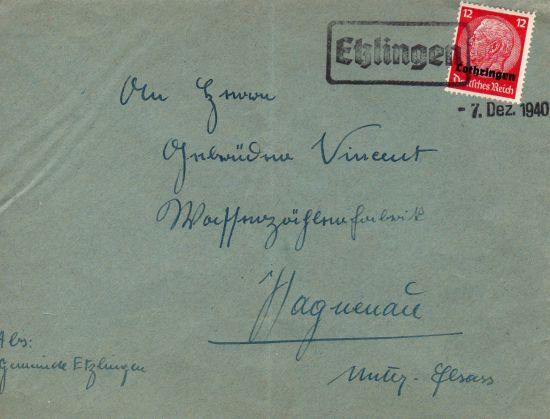 12 12
Etzlingen
Lothringen
Deutsches Reich
- 7. Dez. 1940
An Herrn
Gebrüder Vincent
Wasserzählerfabrik
Haguenau
Unter-Elsass
Abs:
Gemeinde Etzlingen